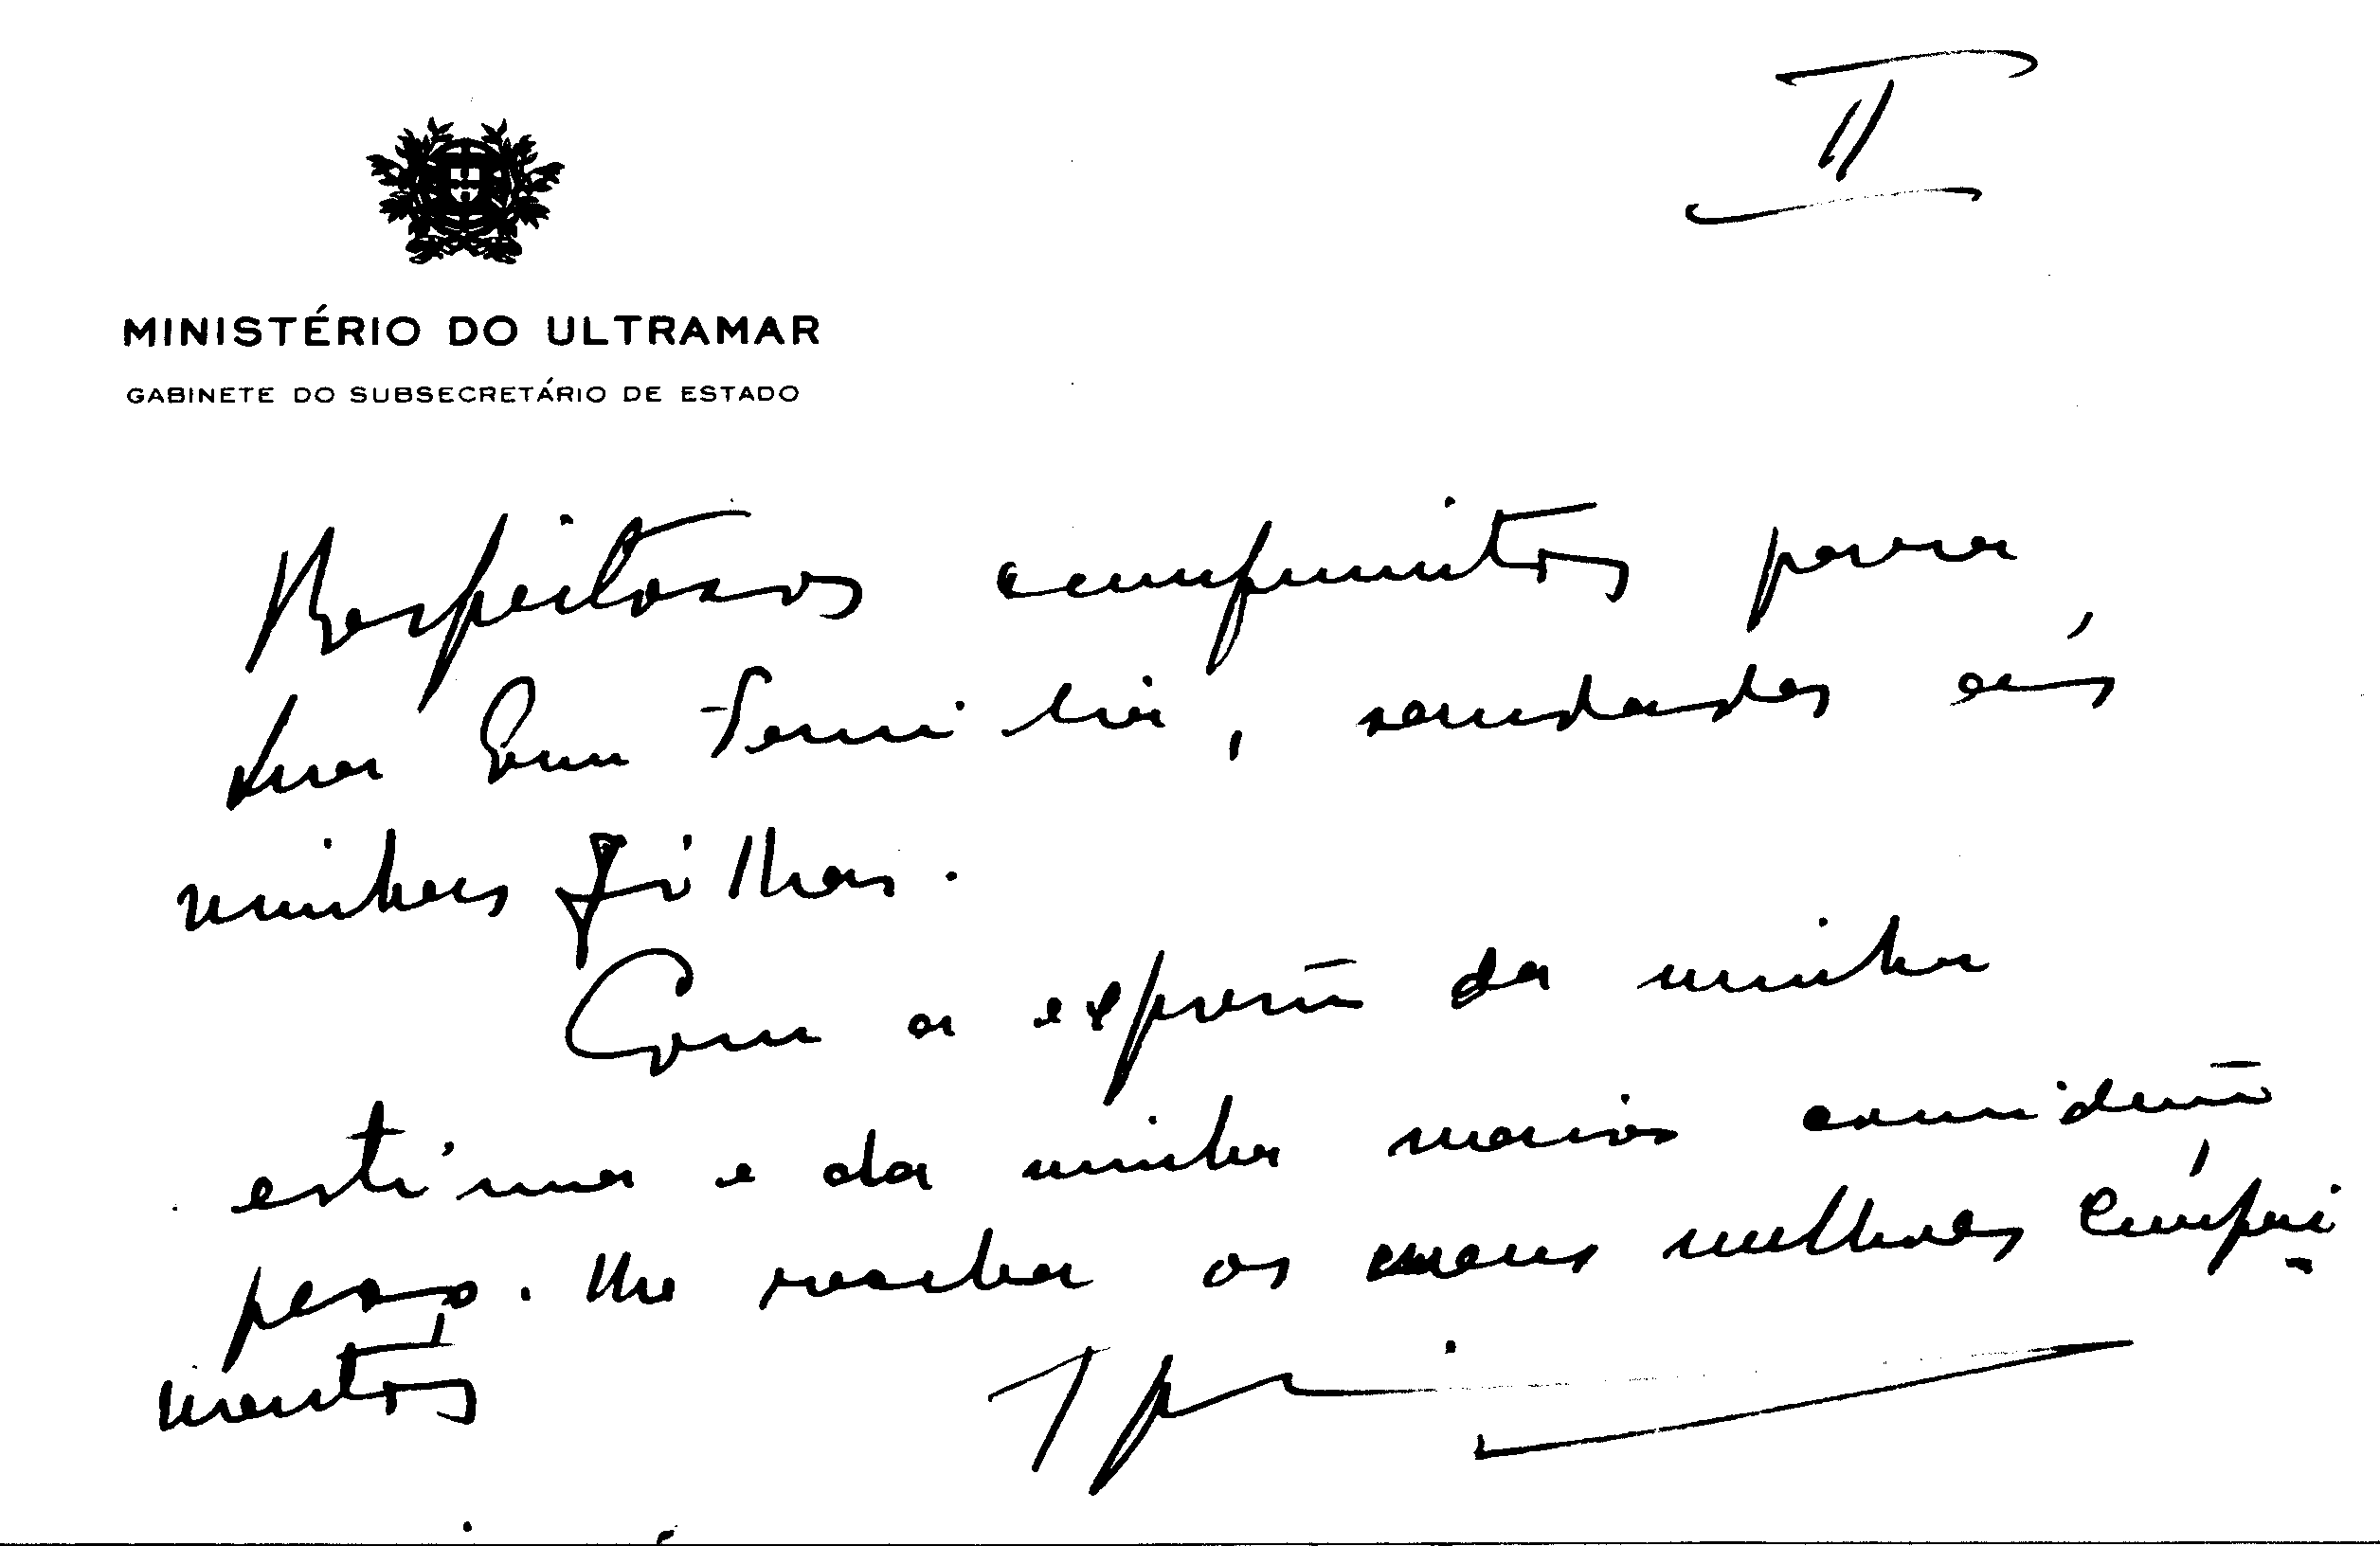 II
MINISTÉRIO DO ULTRAMAR
GABINETE DO SUBSECRETÁRIO DE ESTADO
Respeitosos cumprimentos para
sua Exma família, saudades às
minhas filhas.
Com a expressão da minha
estima e da minha maior consideração
peço. lhe receba os meus melhores cumpri
mentos